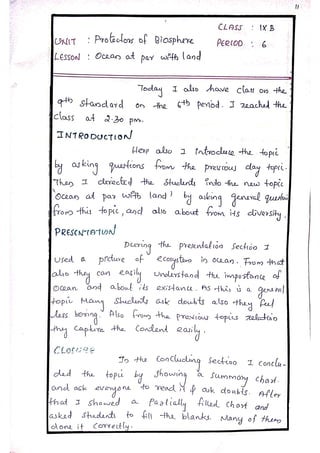 11
CLASS : IX B
UNIT : Protectors of Biosphere
PERIOD : 6
LESSON : Ocean at par with land
Today I also have class on the
9th standard on the 6th period. I reached the
class at 2.30 pm.
INTRODUCTION
Here also I introduce the topic
by asking questions from the previous day topic.
Then I directed the students into the new topic
'Ocean at par with land' by asking general question
from this topic, and also about from its diversity.
PRESENTATION
During the presentation section I
used a picture of ecosystem in ocean. From that
also they can easily understand the importance of
Ocean and about its existance. As this is a general
topic Many Students ask doubts also they feel
less boring. Also from the previous topics relation
they capture the content easily.
CLOSURE
In the concluding section I conclu-
ded the topic by showing a summary chart.
and ask everyone to read it & ask doubts. After
that I showed a Partially filled chart and
asked students to fill the blanks. Many of them
done it correctly.